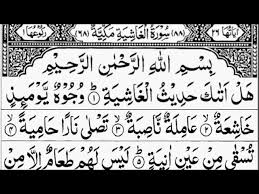 اٰیَاتُهَا ٢٦ (٨٨) سُوْرَةُ الْغَاشِيَةِ مَكِّيَّةٌ (٦٨) رُكُوْعُهَا ١
بِسْمِ اللّٰهِ الرَّحْمٰنِ الرَّحِيْمِ
هَلْ اَتٰىكَ حَدِيْثُ الْغَاشِيَةِ ١ وُجُوْهٌ يَّوْمَئِذٍ
خَاشِعَةٌ ٢ عَامِلَةٌ نَّاصِبَةٌ ٣ تَصْلٰى نَارًا حَامِيَةً ٤
تُسْقٰى مِنْ عَيْنٍ اٰنِيَةٍ ٥ لَيْسَ لَهُمْ طَعَامٌ اِلَّا مِنْ